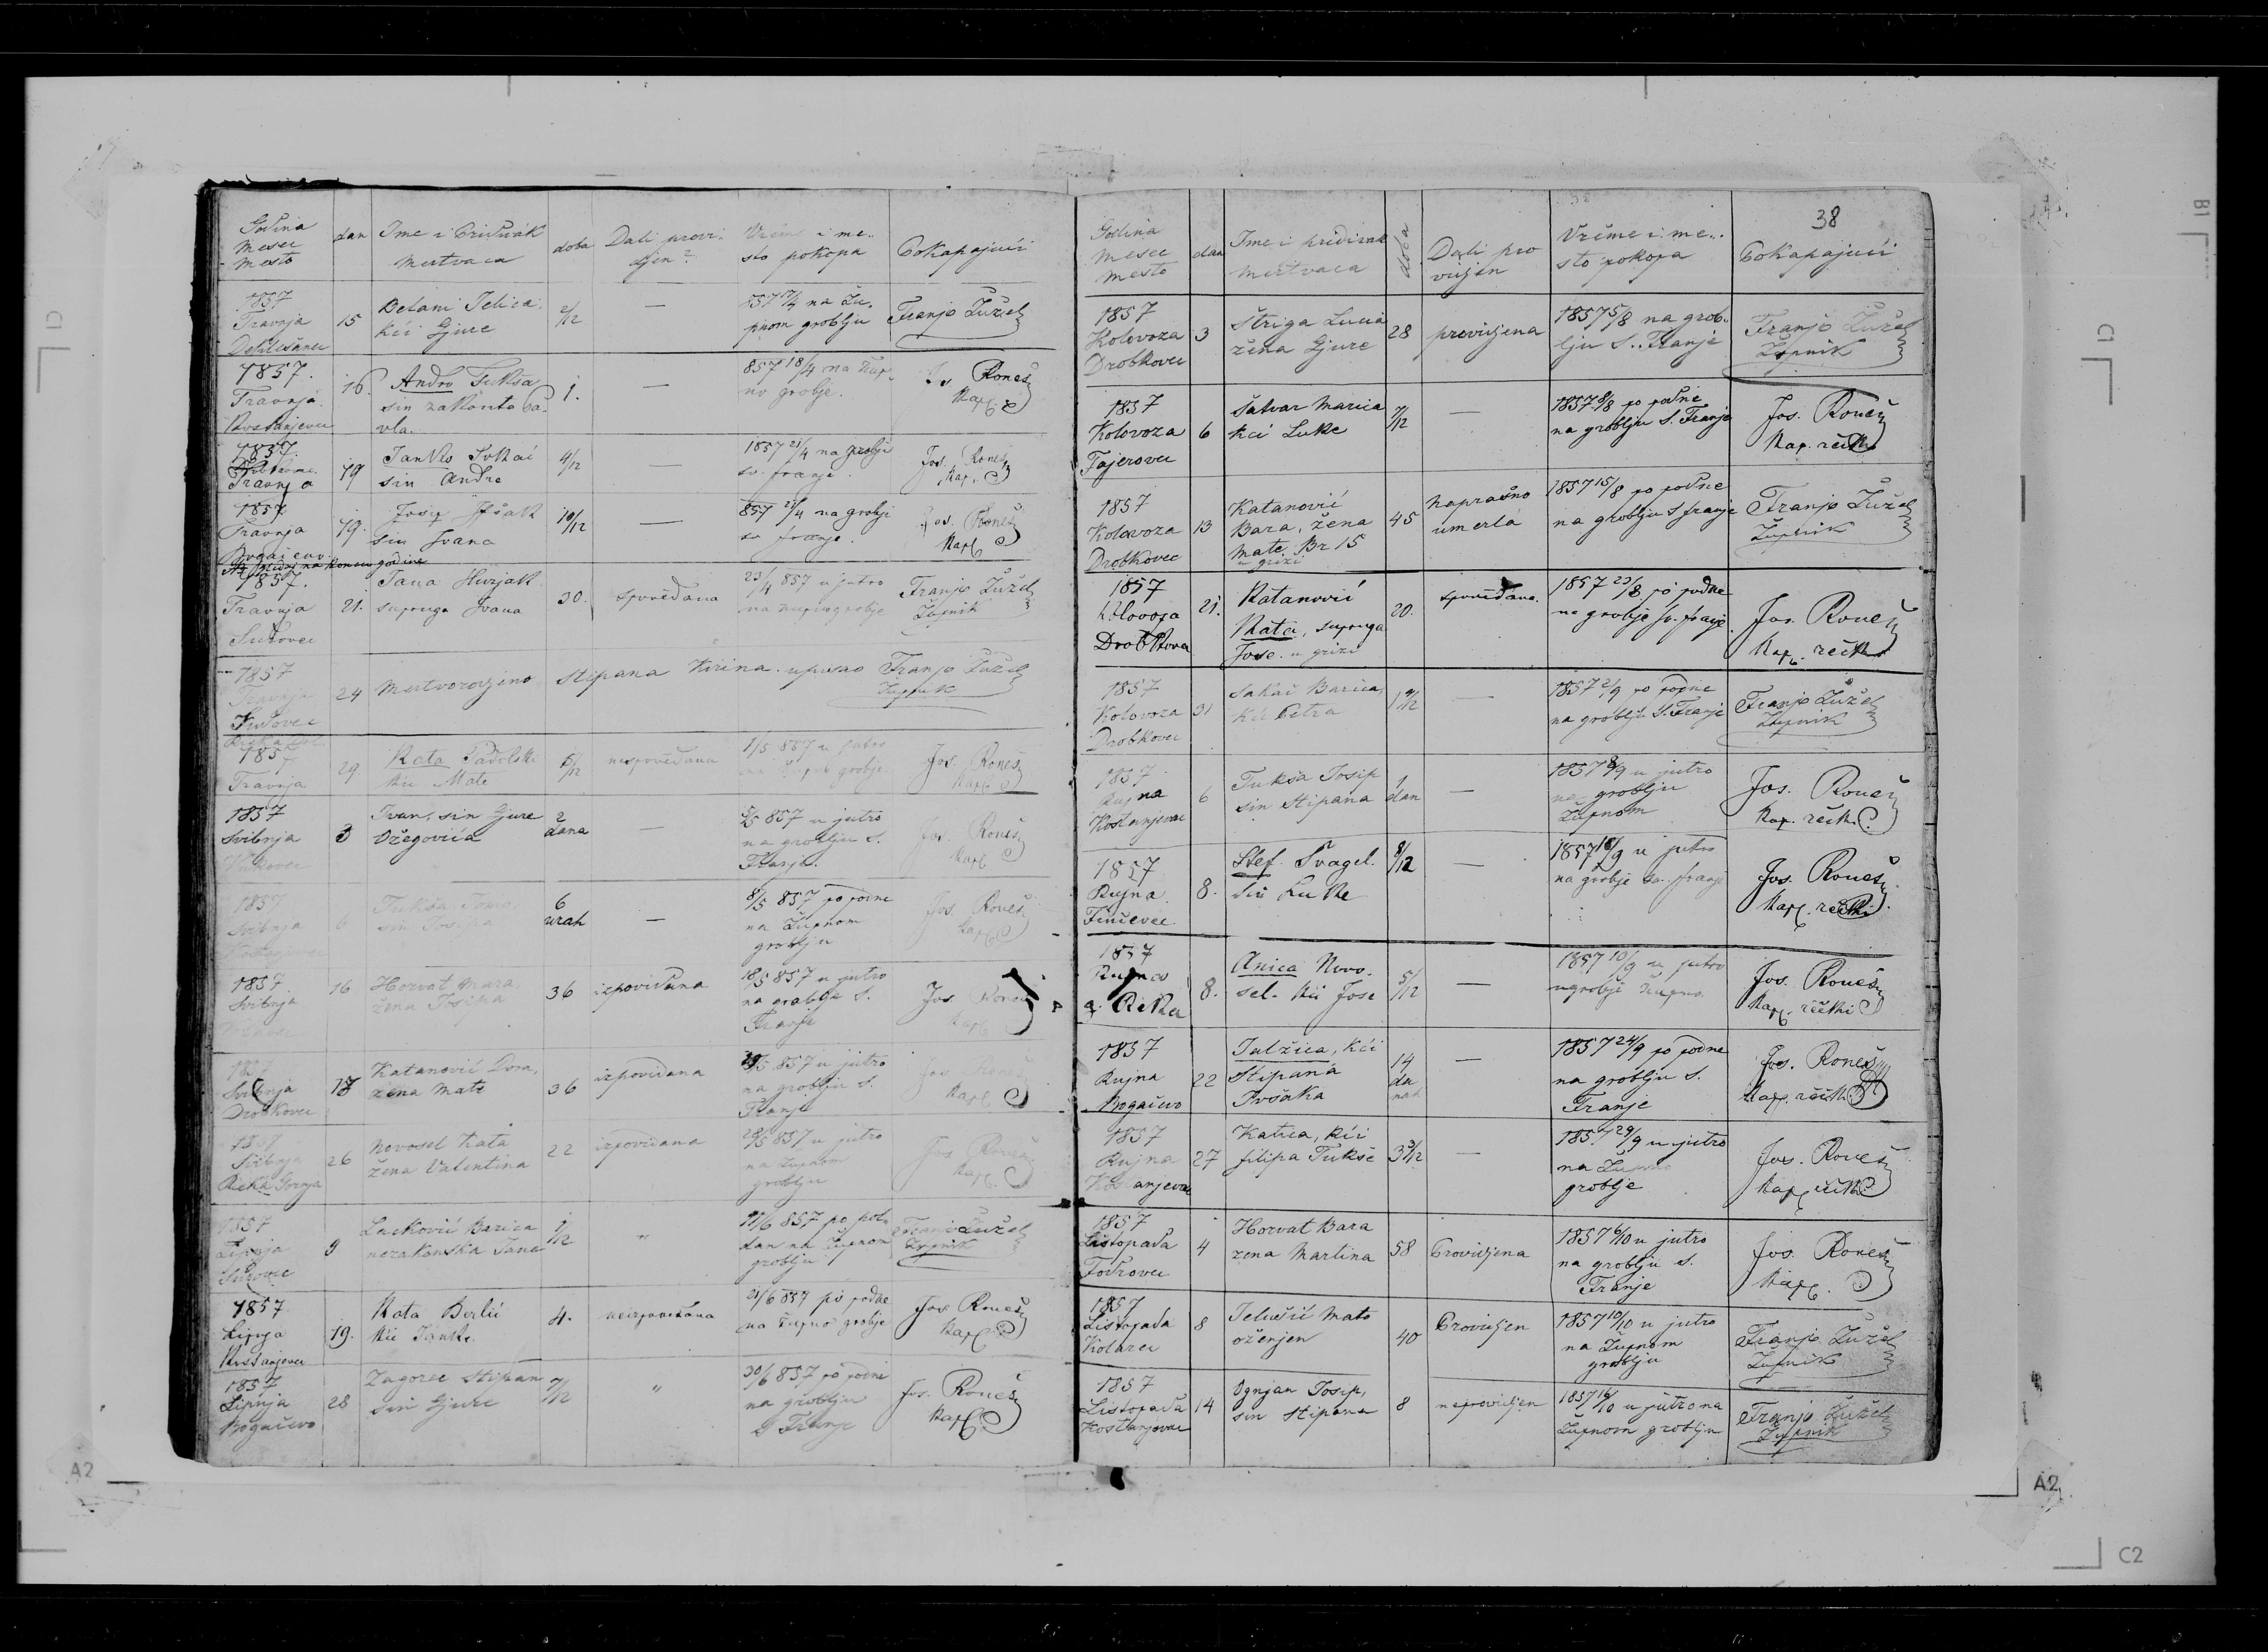 Godina
mesec
mesto
dan
Ime i Pridivák
mertvaca
doba
Dali provi-
djen?
Vrème i me-
sto pokopa
Pokapajući
1857
Travnja
15
Belani Jelica
kći Gjure
2/12
—
857 17/4 na Žu-
pnom groblju
Franjo Žužel
1857.
Travnja
Kostanjevec
16.
Andro Tukša
sin zakonto Pa-
vla.
1.
—
857 18/4 na Žup-
no grobje.
Jos. Roneš
Kapl.
1857.
Travnja
19
Janko
sin Andre
4/12
—
1857 21/4 na grobje
sv. franje.
Jos. Roneš
Kapl.
1857
Travnja
19.
Josip
sin Ivana
10/12
—
857 21/4 na grobje
sv franje.
Jos. Roneš
Kapl.
na koncu godine
1857.
Travnja
21.
Jana Hurjak
supruga Ivana
30.
spovédana
23/4 857 u jutro
na župno grobje
Franjo Žužel
Župnik
1857
Travnja
24
Mertvorodjeno Stipana Kirina upisao Franjo Žužel
Župnik
1857
Travnja
29
Kata
kći Mate
nespovédana
1/5 857 u jutro
na župno grobje
Jos. Roneš
Kapl.
1857
Svibnja
3
Ivan, sin Gjure
Vžegovića
2
dana
—
5/5 857 u jutro
na groblju S.
Franje.
Jos. Roneš
Kapl.
1857
Svibnja
6
Tukša
sin Josipa
6
urah
—
8/5 857 po podne
na Župnom
groblju
Jos. Roneš
Kapl.
1857.
Svibnja
16
Horvat Mara
žena Josipa
36
izpovidana
18/5 857 u jutro
na groblju S.
Franje
Jos. Roneš
Kapl.
1857
Svibnja
Drobkovec
17
Katanović Dora,
žena Mate
36
izpovidana
857 u jutro
na groblju S.
Franje
Jos. Roneš
Kapl.
1857
Svibnja
Rieka Gornja
26
Novosel Kata
žena Valentina
22
izpovidana
28/5 857 u jutro
na Župnom
groblju
Jos. Roneš
Kapl.
1857
Lipnja
9
Lacković Barica
nezakonska Jane
1/12
"
11/6 857 po pol-
dan na Župnom
groblju
Franjo Žužel
Župnik
1857
Lipnja
Kostanjevec
19.
Kata Berlić
kći Janka.
4.
neizpovédana
21/6 857 po podne
na Župno grobje
Jos. Roneš
Kapl.
1857
Lipnja
Bogačevo
28
Zagorec Stipan
sin Gjure
7/12
"
30/6 857 po podne
na groblju
S Franje
Jos. Roneš
Kapl.
38
Godina
mesec
mesto
dan
Ime i pridivak
mertvaca
doba
Dali pro
vidjen
Vrème i me-
sto pokopa
Pokapajući
1857
Kolovoza
Drobkovec
3
Štriga Lucia
žena Gjure
28
providjena
1857 5/8 na grob-
lju S. Franje
Franjo Žužel
Župnik
1857
Kolovoza
Fajerovec
6
Šatvar Marica
kći Luke
7/12
—
1857 8/8 po podne
na groblju S. Franje
Jos. Roneš
Kap. rečki
1857
Kolovoza
Drobkovec
13
Katanović
Bara, žena
Mate Br 15
u grizi
45
naprasno
umerla
1857 15/8 po podne
na groblju S franje
Franjo Žužel
Župnik
1857
Kolovoza
Drobkovec
21.
Katanović
Kata, supruga
Jose. u grizi
20.
spovédana.
1857 23/8 po podne
na grobje sv. franje.
Jos. Roneš
Kap. rečki
1857
Kolovoza
Drobkovec
31
Sakač Barica,
kći Petra
—
1857 2/9 po podne
na groblju S. Franje
Franjo Žužel
Župnik
1857
Rujna
Kostanjevac
6
Tukša Josip
sin Stipana
1
dan
—
1857 8/9 u jutro
na groblju
Župnom
Jos. Roneš
Kap. rečki.
1857
Rujna
8.
Stef. Švagel.
sin Luke
8/12
—
1857 10/9 u jutro
na grobje sv. franje
Jos. Roneš
Kap. rečki.
1857
Rujna
g. Rieka
8.
Anica Novo-
sel. kći Jose
5/12
—
1857 10/9 u jutro
u grobje župno.
Jos. Roneš
Kap. rečki
1857
Rujna
Bogačevo
22
Julžica, kći
Stipana
Pošaka
14
da
nah
—
1857 24/9 po podne
na groblju S.
Franje
Jos. Roneš
Kap. rečki
1857
Rujna
Kostanjevac
27
Katica, kći
Filipa Tukše
—
1857 29/9 u jutro
na Župno
groblje
Jos. Roneš
Kap. rečki
1857
Listopada
Fodrovec
4
Horvat Bara
žena Martina
58
Providjena
1857 6/10 u jutro
na groblju S.
Franje
Jos. Roneš
Kap.
1857
Listopada
Kolarec
8
Jelušić Mato
oženjen
40
Providjen
1857 10/10 u jutro
na Župnom
groblju
Franjo Žužel
Župnik
1857
Listopada
Kostanjevac
14
Ognjan Josip,
sin Stipana
8
neprovidjen
1857 16/10 u jutro na
Župnom groblju
Franjo Žužel
Župnik
C1
A2
C1
B1
A2
C2